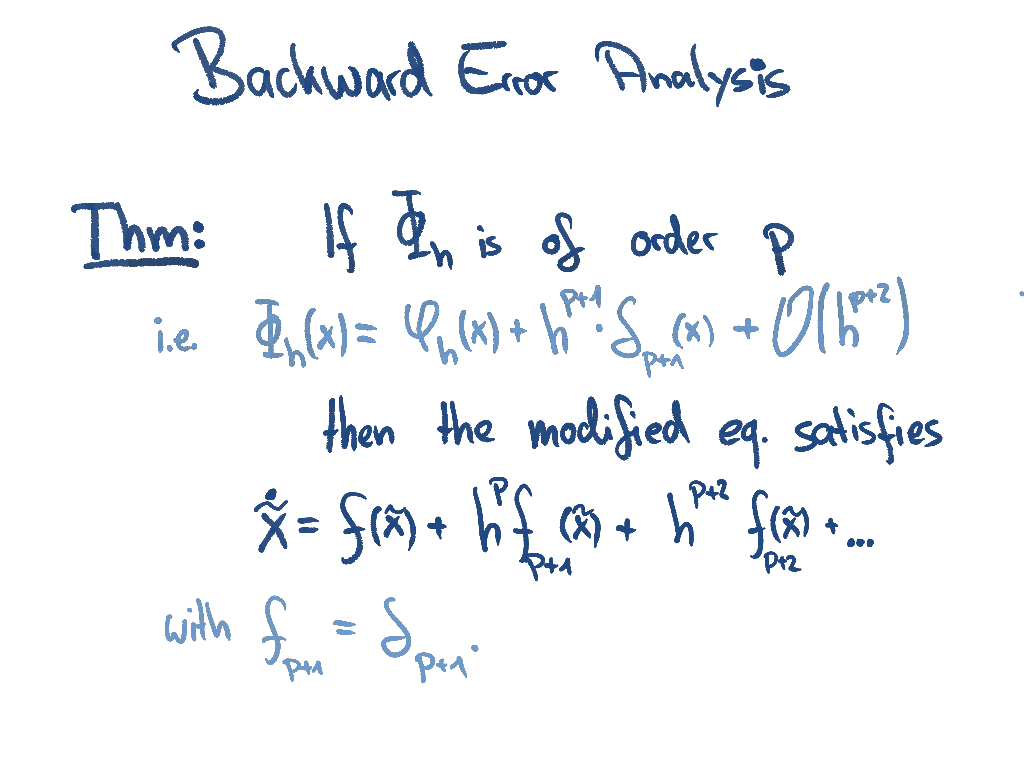 Backward Error Analysis
Thm: If Φ_h is of order p
i.e. Φ_h(x) = φ_h(x) + h^{p+1} · δ_{p+1}(x) + O(h^{p+2})
then the modified eq. satisfies
\dot{\tilde{x}} = f(\tilde{x}) + h^p f_{p+1}(\tilde{x}) + h^{p+2} f_{p+2}(\tilde{x}) + ...
with f_{p+1} = δ_{p+1}.